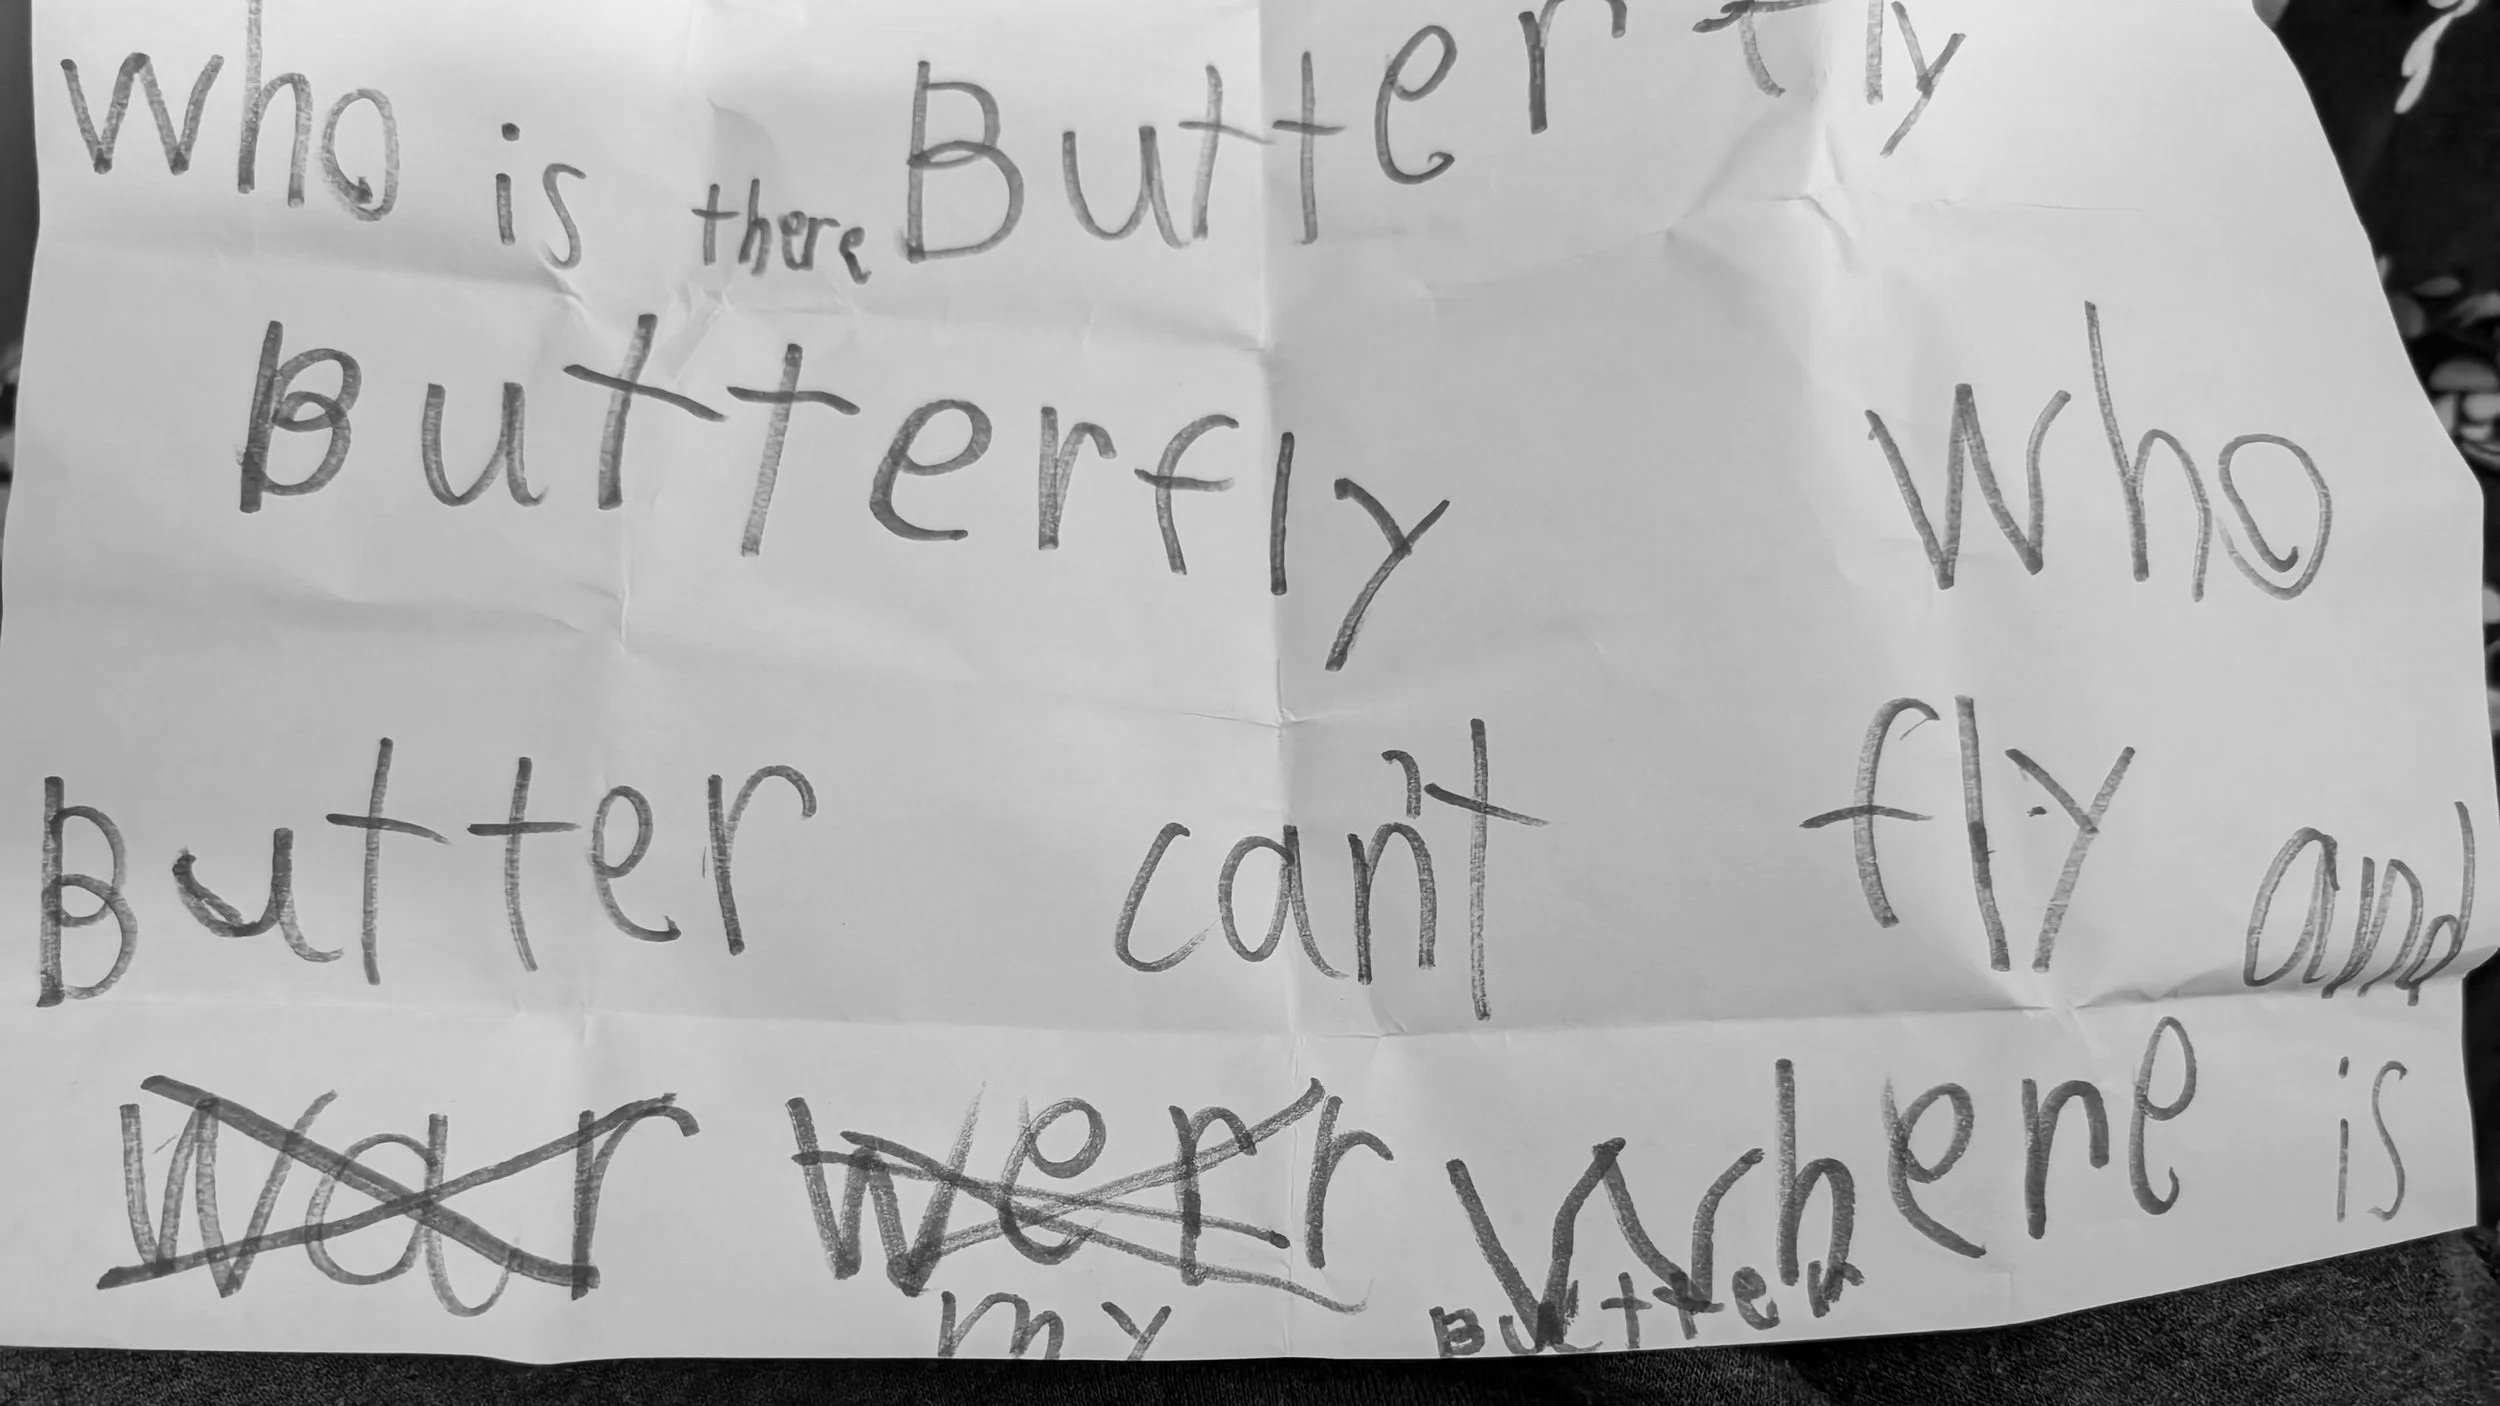 Who is there Butterfly
Butterfly Who
Butter can't fly and
War werr Where is
my Butter